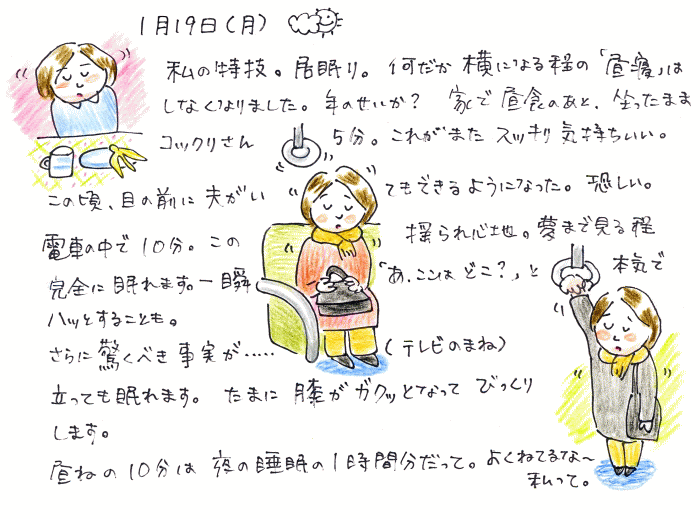 1月19日(月)
私の特技。居眠り。何だか横になる程の「昼寝」は
しなくなりました。年のせいか? 家で昼食のあと、坐ったまま
コックリさん 5分。これがまたスッキリ気持ちいい。
この頃、目の前に夫がい てもできるようになった。恐しい。
電車の中で10分。この 揺られ心地。夢まで見る程
完全に眠れます。一瞬 「あ、ここはどこ?」と 本気で
ハッとすることも。
さらに驚くべき事実が‥‥‥ (テレビのまね)
立っても眠れます。たまに膝がガクッとなってびっくり
します。
昼ねの10分は夜の睡眠の1時間分だって。よくねてるな〜
私って。